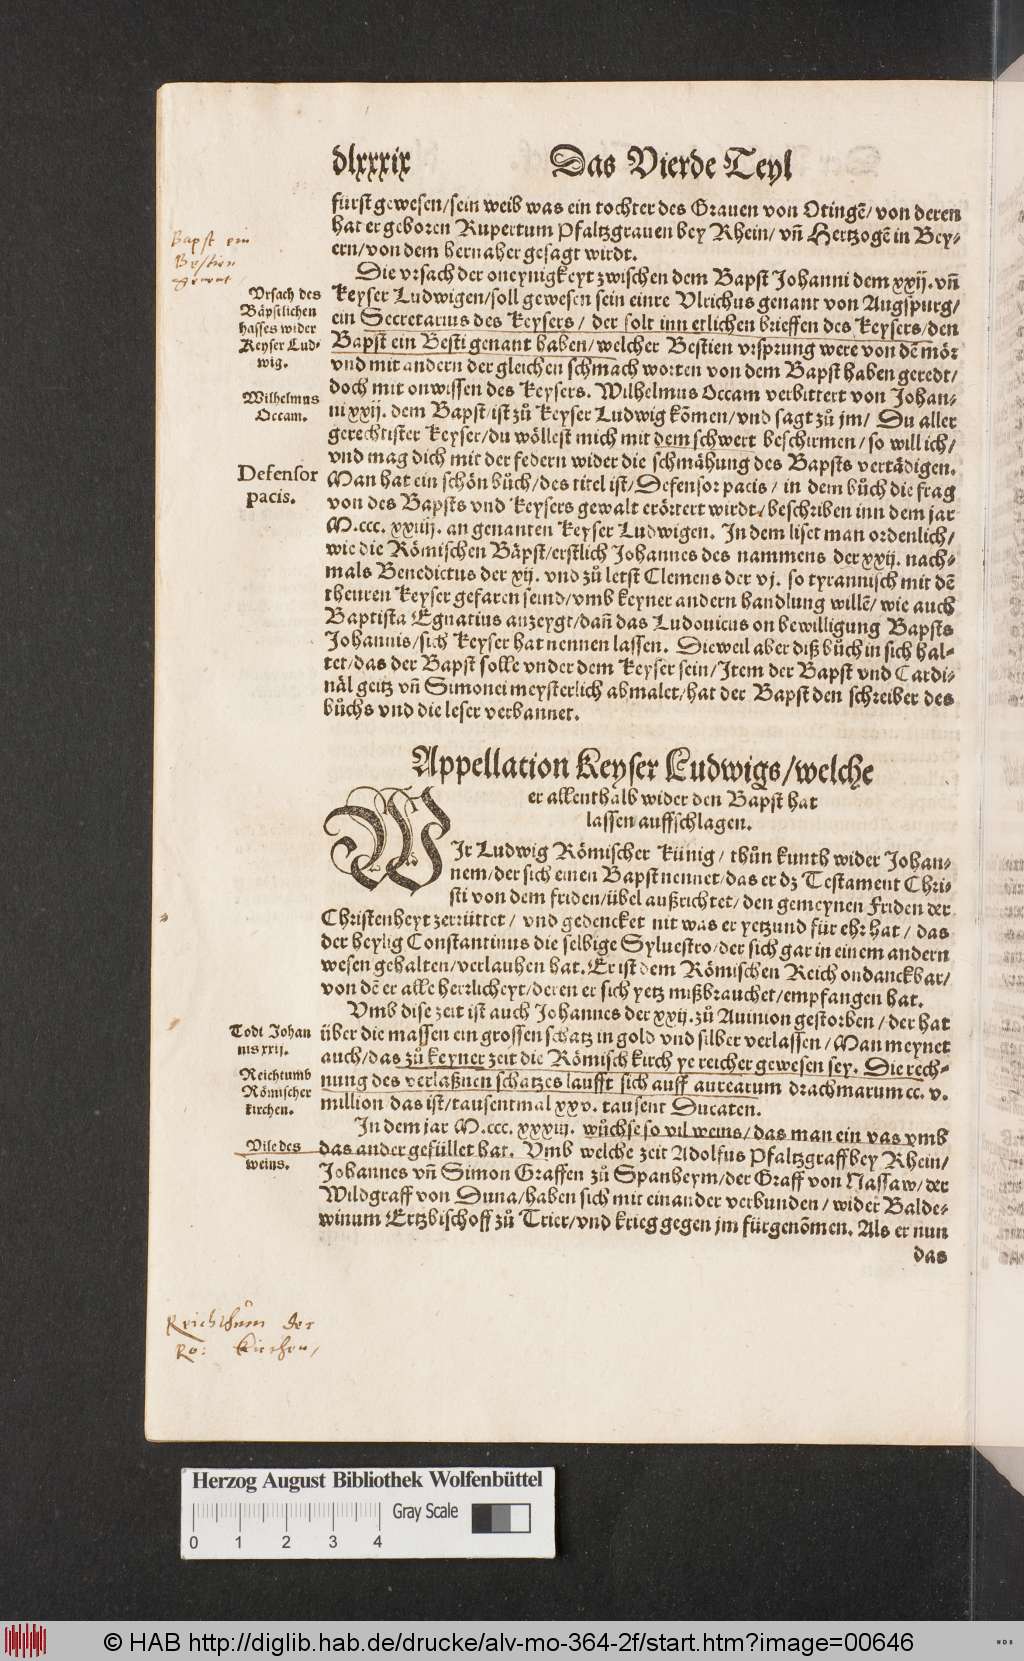 dlxxxix Das Vierde Teyl
fürst gewesen/sein weib was ein tochter des Grauen von Otingē/von deren
hat er geboren Rupertum Pfaltzgrauen bey Rhein/vñ Hertzogē in Bey-
ern/von dem hernaher gesagt wirdt.
Bapst ein
Bestien
genent
Die vrsach der oneynigkeyt zwischen dem Bapst Johanni dem xxij. vñ
Keyser Ludwigen/soll gewesen sein einre Vlrichus genant von Augspurg/
ein Secretarius des Keysers/ der solt inn etlichen brieffen des Keysers/den
Bapst ein Besti genant haben/welcher Bestien vrsprung were von dē mör
vnd mit andern der gleichen schmach worten von dem Bapst haben geredt/
doch mit onwissen des Keysers. Wilhelmus Occam verbittert von Johan-
ni xxij. dem Bapst/ist zů Keyser Ludwig kōmen/vnd sagt zů jm/ Du aller
gerechtister Keyser/du wöllest mich mit dem schwert beschirmen/ so will ich/
vnd mag dich mit der federn wider die schmähung des Bapsts vertädigen.
Man hat ein schön bůch/des titel ist/Defensor pacis/ in dem bůch die frag
von des Bapsts vnd Keysers gewalt erörtert wirdt/beschriben inn dem jar
M.ccc. xxiiij. an genanten Keyser Ludwigen. In dem liset man ordenlich/
wie die Römischen Bäpst/erstlich Johannes des nammens der xxij. nach-
mals Benedictus der xij. vnd zů letst Clemens der vj. so tyrannisch mit dē
theuren Keyser gefaren seind/vmb keyner andern handlung willē/ wie auch
Baptista Egnatius anzeygt/dañ das Ludouicus on bewilligung Bapsts
Johannis/sich Keyser hat nennen lassen. Dieweil aber diß bůch in sich hal-
tet/das der Bapst solle vnder dem Keyser sein/Item der Bapst vnd Cardi-
näl geitz vñ Simonei meysterlich abmalet/hat der Bapst den schreiber des
bůchs vnd die leser verbannet.
Vrsach des
Bäpstlichen
hasses wider
Keyser Lud-
wig.
Wilhelmus
Occam.
Defensor
pacis.
Appellation Keyser Ludwigs/welche
er allenthalb wider den Bapst hat
lassen auffschlagen.
WIr Ludwig Römischer Künig/ thůn kunth wider Johan-
nem/der sich einen Bapst nennet/das er dz Testament Chri-
sti von dem friden/übel außrichtet/den gemeynen Friden der
Christenheyt zerrüttet/ vnd gedencket nit was er yetzund für ehr hat/ das
der heylig Constantinus die selbige Syluestro/der sich gar in einem andern
wesen gehalten/verlauhen hat. Er ist dem Römischen Reich ondanckbar/
von dē er alle herrlicheyt/deren er sich yetz mißbrauchet/empfangen hat.
Vmb dise zeit ist auch Johannes der xxij. zů Auinion gestorben/der hat
über die massen ein grossen schatz in gold vnd silber verlassen/Man meynet
auch/das zů keyner zeit die Römisch kirch ye reicher gewesen sey. Die rech-
nung des verlaßnen schatzes laufft sich auff aurearum drachmarum cc. v.
million das ist/tausentmal xxv. tausent Ducaten.
Todt Johan
nis xxij.
Reichtumb
Römischer
kirchen.
In dem jar M.ccc. xxxiij. wůchse so vil weins/das man ein vas vmb
das ander gefüllet hat. Vmb welche zeit Adolfus Pfaltzgraff bey Rhein/
Johannes vñ Simon Graffen zů Spanheym/der Graff von Nassaw/der
Wildgraff von Duna/haben sich mit einander verbunden/ wider Balde-
winum Ertzbischoff zů Trier/vnd krieg gegen jm fürgenōmen. Als er nun
das
Vile des
weins.
Reichthům der
Rö: Kirchen/
Herzog August Bibliothek Wolfenbüttel
Gray Scale
0 1 2 3 4
© HAB http://diglib.hab.de/drucke/alv-mo-364-2f/start.htm?image=00646